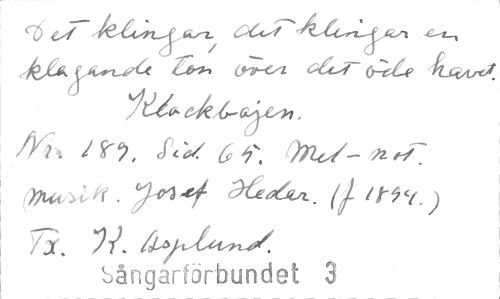 Det klingar, det klingar en
klagande ton över det öde havet.
Klockbojen.
Nr. 189. Sid. 65. Mel-not.
musik. Josef Hedar. (f 1894.)
Tx. K. Asplund.
Sångarförbundet 3